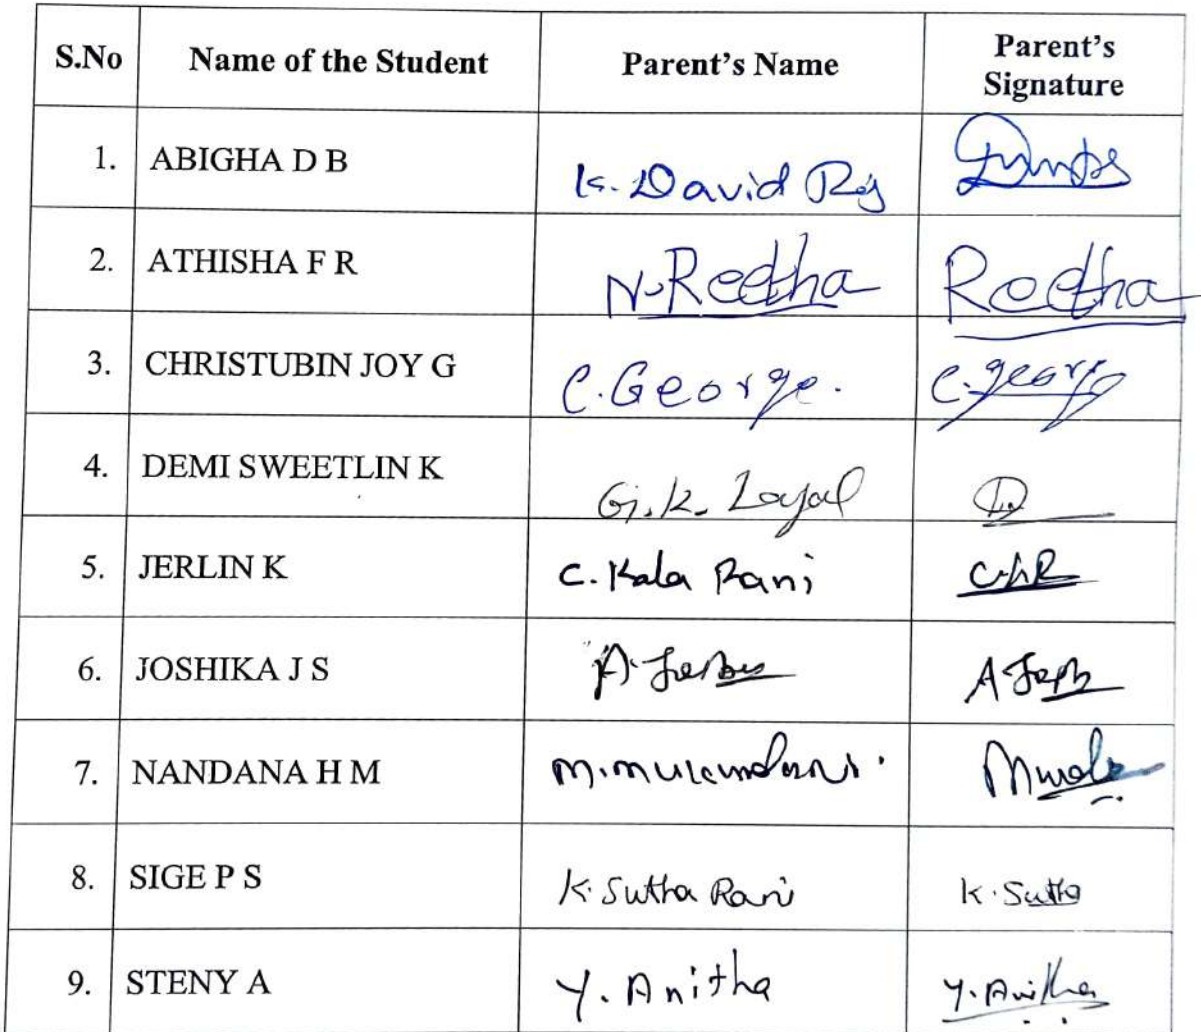 S.No Name of the Student Parent's Name Parent's Signature
1. ABIGHA D B K. David Raj
2. ATHISHA F R N. Reetha Reetha
3. CHRISTUBIN JOY G C. George. C. George
4. DEMI SWEETLIN K G. K. Layal
5. JERLIN K C. Kala Rani C.K.R
6. JOSHIKA J S A.
7. NANDANA H M
8. SIGE P S K. Sutha Rani K. Sutha
9. STENY A Y. Anitha Y. Anitha